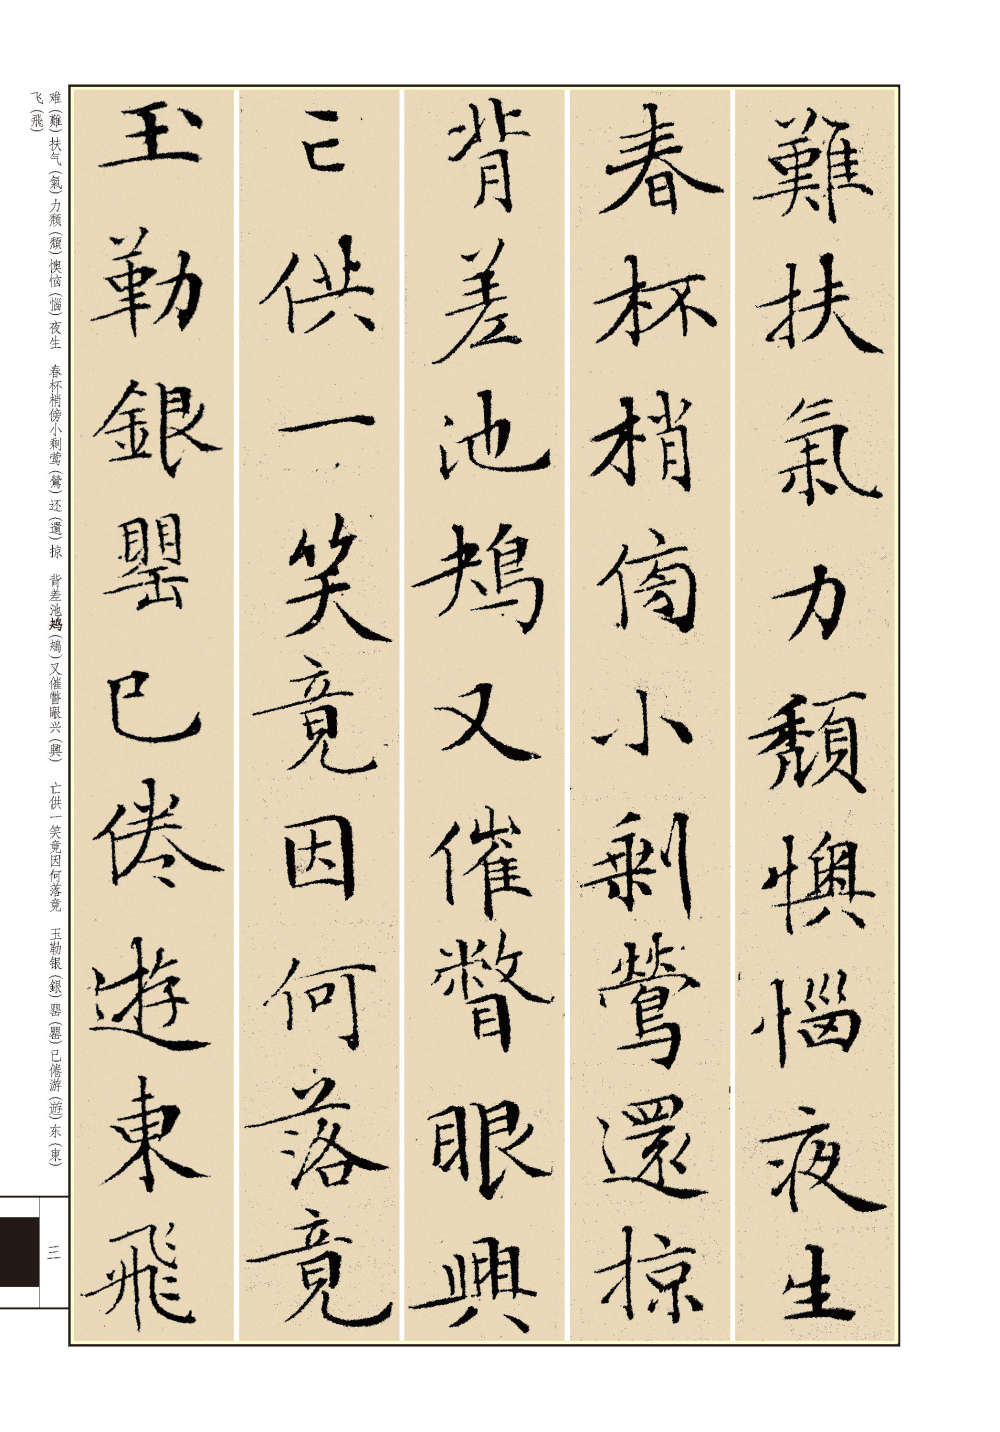 難扶氣力頹懊惱夜生
春杯梢傍小剩鶯還掠
背差池鴂又催瞥眼興
亡供一笑竟因何落竟
玉勒銀罌已倦遊東飛
难(難)扶气(氣)力颓(頹)懊恼(惱)夜生 春杯梢傍小剩莺(鶯)还(還)掠 背差池鴂(鴂)又催瞥眼兴(興) 亡供一笑竟因何落竟 玉勒银(銀)罂(罌)已倦游(遊)东(東)
飞(飛)
三